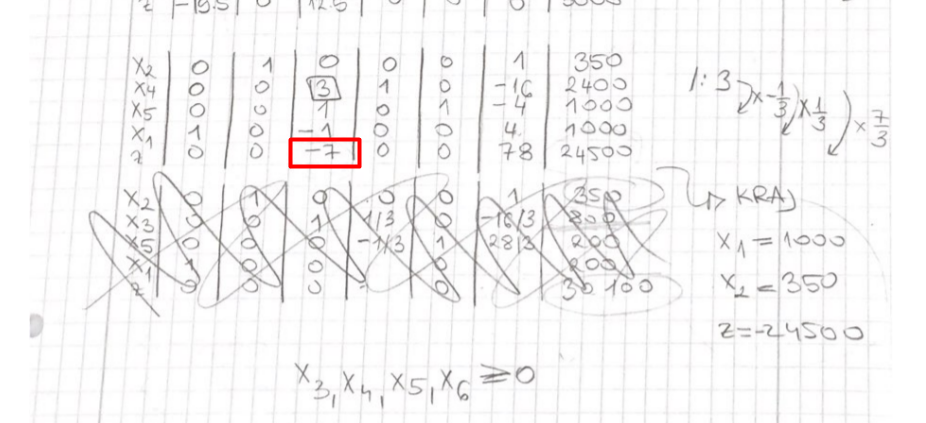 z | -19.5 | 0 | 12.5 | 0 | 0 | 0 | 5000
x2 | 0 | 1 | 0 | 0 | 0 | 1 | 350
x4 | 0 | 0 | 3 | 1 | 0 | -16 | 2400
x5 | 0 | 0 | 1 | 0 | 1 | -4 | 1000
x1 | 1 | 0 | -1 | 0 | 0 | 4 | 1000
z | 0 | 0 | -7 | 0 | 0 | 78 | 24500
/: 3 x-1/3 x1/3 x7/3
x2 | 0 | 1 | 0 | 0 | 0 | 1 | 350
x3 | 0 | 0 | 1 | 1/3 | 0 | -16/3 | 800
x5 | 0 | 0 | 0 | -1/3 | 1 | 28/3 | 200
x1 | 1 | 0 | 0 | 0 | 200
z | 0 | 0 | 0 | 0 | 30100
KRAJ
x1 = 1000
x2 = 350
z=-24500
x3, x4, x5, x6 ≥ 0